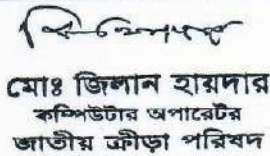 মোঃ জিলান হায়দার
কম্পিউটার অপারেটর
জাতীয় ক্রীড়া পরিষদ